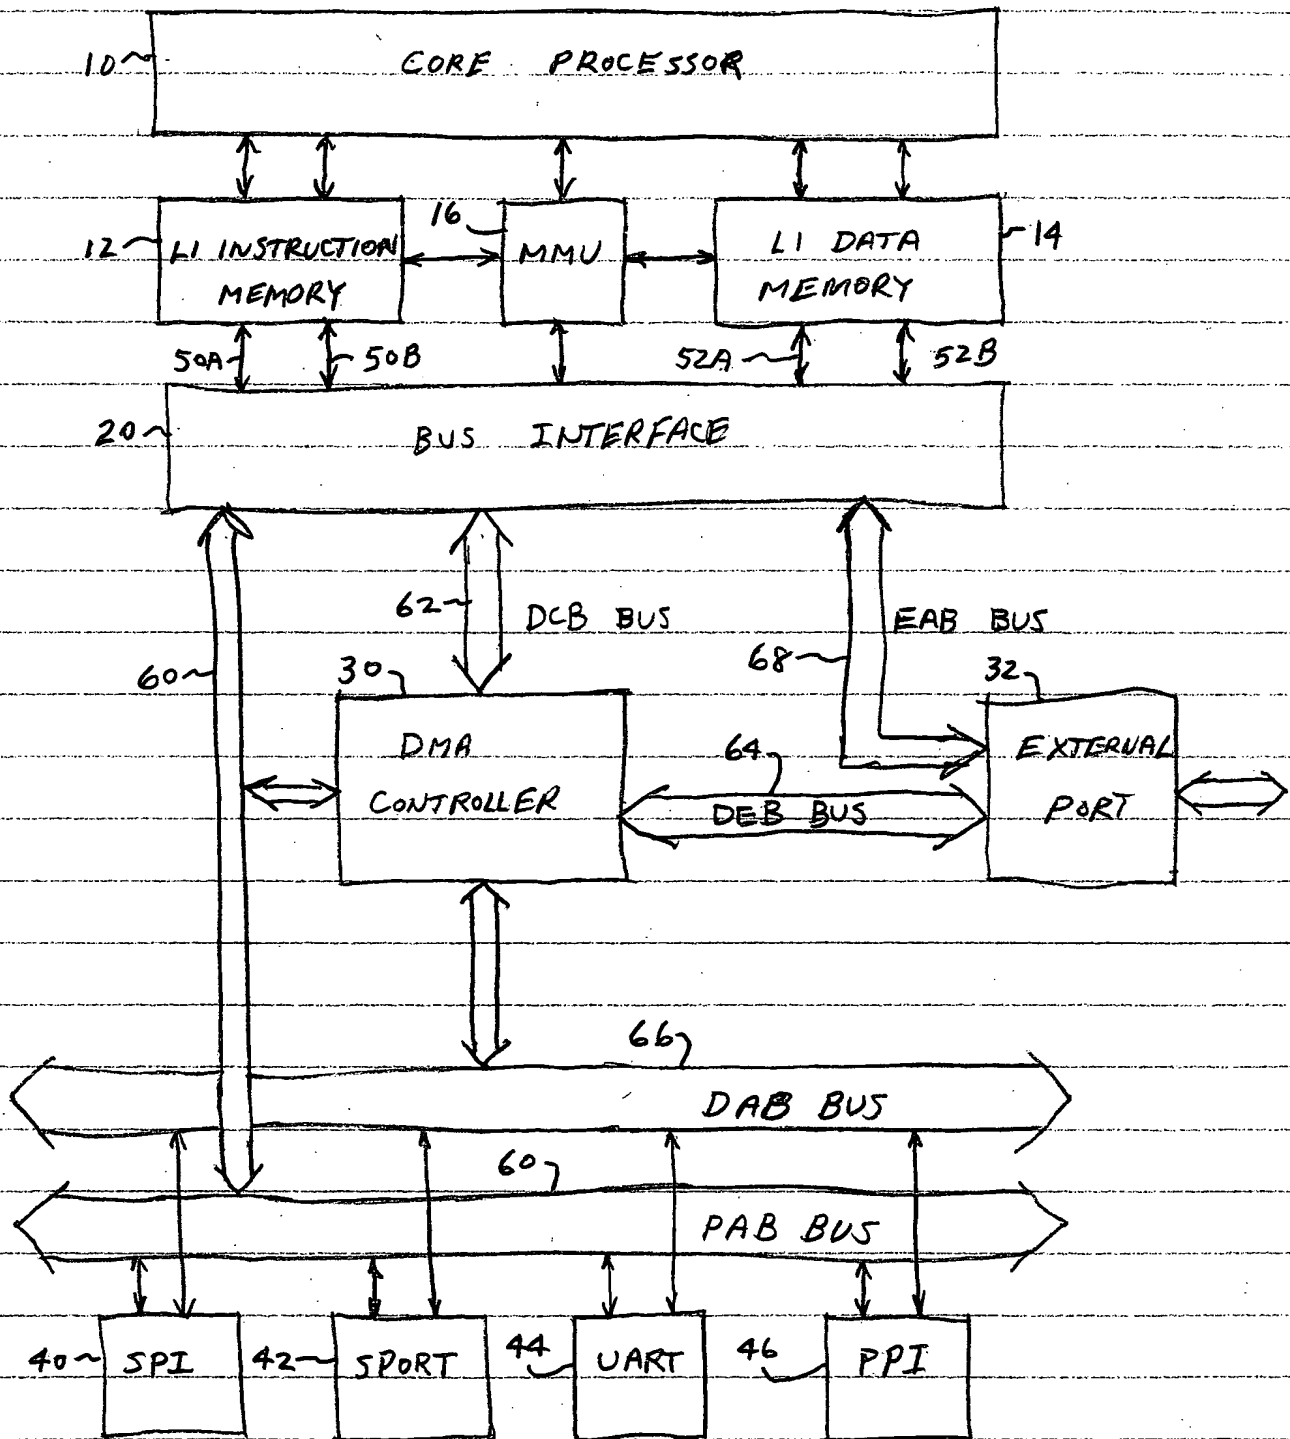 10 CORE PROCESSOR
12 L1 INSTRUCTION MEMORY
16 MMU
L1 DATA MEMORY 14
50A 50B 52A 52B
20 BUS INTERFACE
62 DCB BUS
EAB BUS
60 68
30 DMA CONTROLLER
32 EXTERNAL PORT
64 DEB BUS
66
DAB BUS
60
PAB BUS
40 SPI 42 SPORT 44 UART 46 PPI